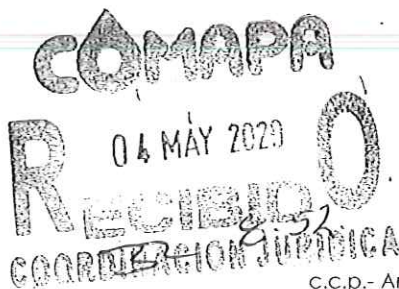 COMAPA
04 MAY 2020
RECIBIDO
COORDINACION JURIDICA
c.c.p.- Ar